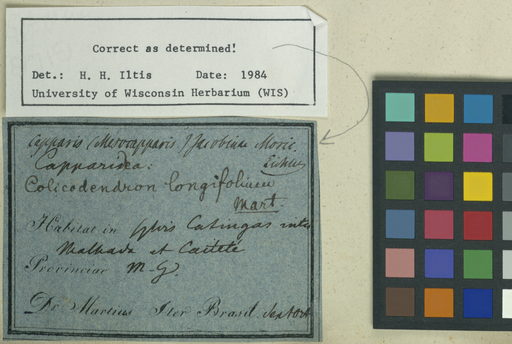 Correct as determined!
Det.: H. H. Iltis Date: 1984
University of Wisconsin Herbarium (WIS)
Capparis (Mesocapparis) Jacobinae Moric.
Eichler
Capparidea.
Colicodendron longifolium
Mart.
Habitat in sylvis Catingas inter
Malhada et Caiteté
Provinciae M-G.
Dr Martius Iter Brasil.